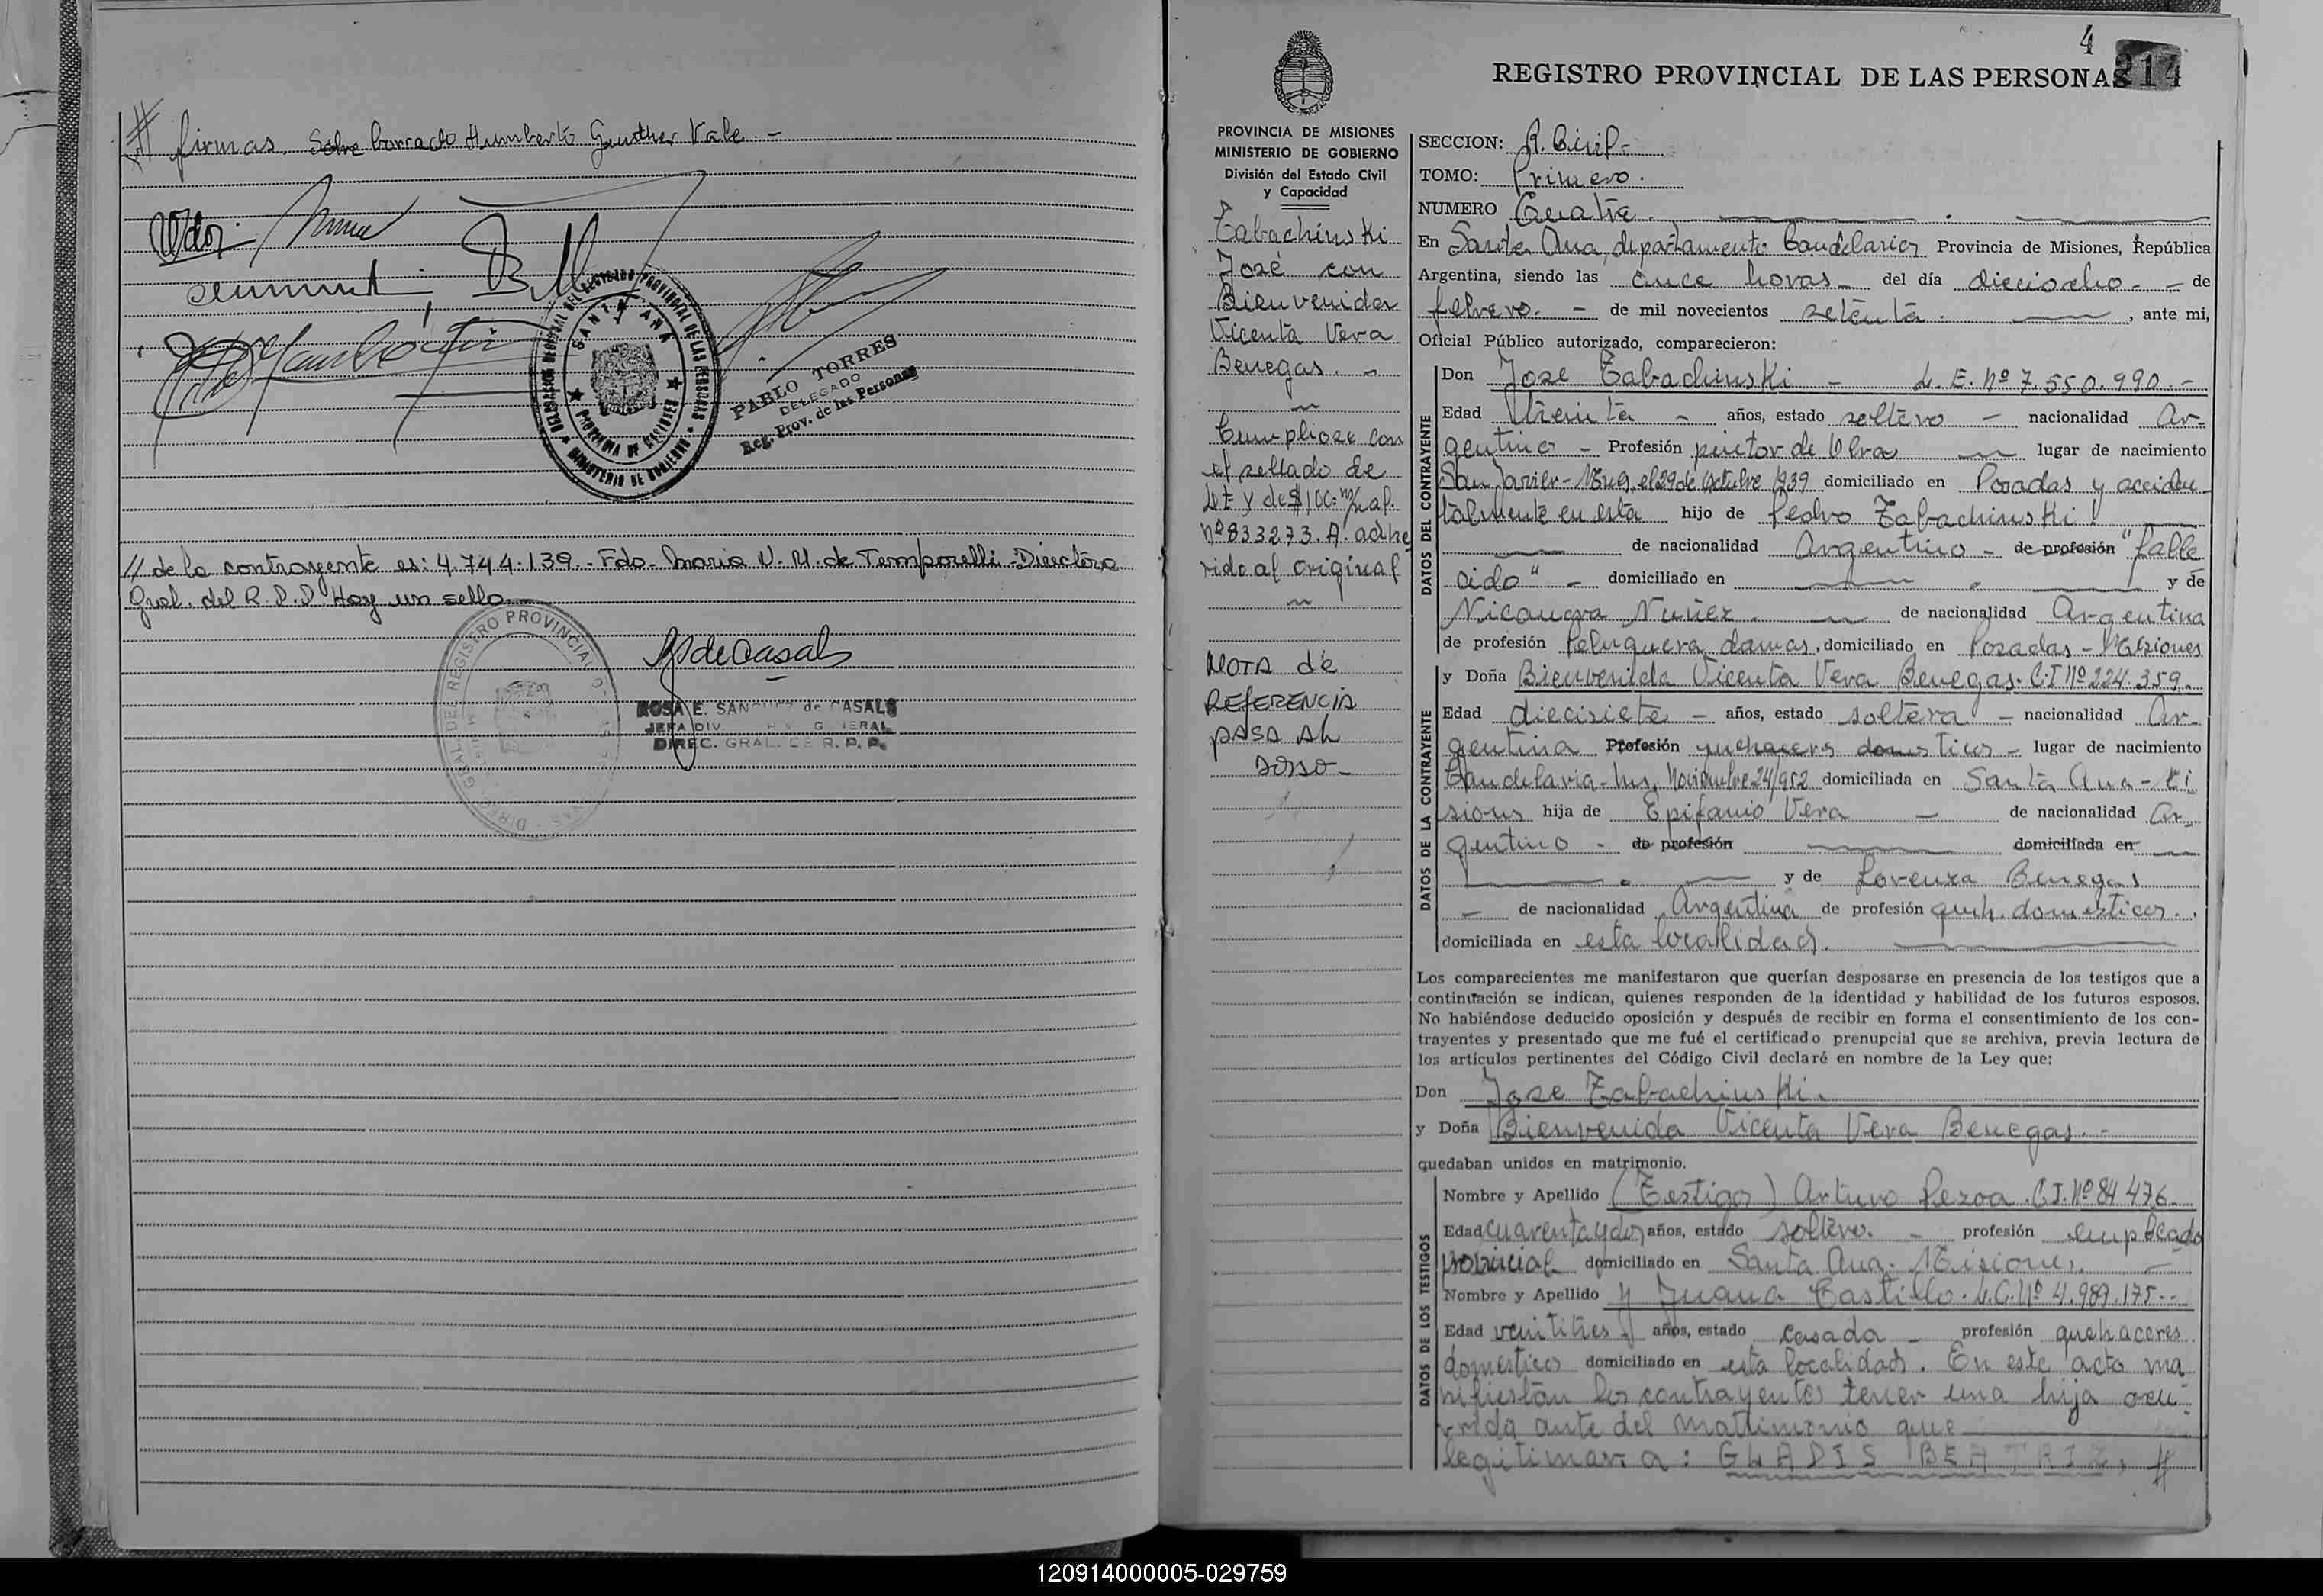 # firmas. Sobre borrado Humberto Gunther Vale. -
SANTA ANA
PROVINCIA DE MISIONES
MINISTERIO DE GOBIERNO
PABLO TORRES
DELEGADO
Reg. Prov. de las Personas
// de la contrayente es: 4.744.139. - Fdo. Maria U. U. de Temporelli - Directora
Gral. del R.P.P. Hay un sello. -
RdeCasals
ROSA E. SANCHEZ de CASALS
JEFA DIV. GENERAL
DIREC. GRAL. DE R. P. P.
4
214
REGISTRO PROVINCIAL DE LAS PERSONAS
PROVINCIA DE MISIONES
MINISTERIO DE GOBIERNO
División del Estado Civil
y Capacidad
Tabachinski
José con
Bienvenida
Vicenta Vera
Benegas. -
Cumpliose con
el sellado de
Ley de $100 m/n al.
nº 833273. A. adhe
rido al original
NOTA de
REFERENCIA
PASA AL
DORSO -
SECCION: R. Civil -
TOMO: Primero.
NUMERO Cuatro.
En Santa Ana, departamento Candelaria, Provincia de Misiones, República
Argentina, siendo las once horas - del día dieciocho - - de
febrero. - de mil novecientos setenta. , ante mi,
Oficial Público autorizado, comparecieron:
DATOS DEL CONTRAYENTE
Don Jose Tabachinski - L. E. Nº 7.550.990. -
Edad treinta - años, estado soltero - nacionalidad Ar-
gentino - Profesión pintor de Obras lugar de nacimiento
San Javier - Mnes, el 29 de Octubre 1939 domiciliado en Posadas y acciden
talmente en esta hijo de Pedro Tabachinski.
de nacionalidad Argentino - de profesión "falle
cido" - domiciliado en y de
Nicanora Nuñez. de nacionalidad Argentina
de profesión Peluquera damas, domiciliado en Posadas - Misiones
DATOS DE LA CONTRAYENTE
y Doña Bienvenida Vicenta Vera Benegas. C.I Nº 224.359.
Edad diecisiete - años, estado soltera - nacionalidad Ar-
gentina Profesión quehaceres domesticos - lugar de nacimiento
Candelaria - Mns, Noviembre 24/952 domiciliada en Santa Ana - Mi
siones hija de Epifanio Vera - de nacionalidad Ar-
gentino - de profesión domiciliada en
y de Lorenza Benegas
- de nacionalidad Argentina de profesión queh. domesticos.
domiciliada en esta localidad.
Los comparecientes me manifestaron que querían desposarse en presencia de los testigos que a
continuación se indican, quienes responden de la identidad y habilidad de los futuros esposos.
No habiéndose deducido oposición y después de recibir en forma el consentimiento de los con-
trayentes y presentado que me fué el certificado prenupcial que se archiva, previa lectura de
los artículos pertinentes del Código Civil declaré en nombre de la Ley que:
Don Jose Tabachinski.
y Doña Bienvenida Vicenta Vera Benegas. -
quedaban unidos en matrimonio.
DATOS DE LOS TESTIGOS
Nombre y Apellido (Testigos) Arturo Pezoa. C.I. Nº 84 476
Edad cuarenta y dos años, estado soltero. - profesión empleado
provincial domiciliado en Santa Ana. Misiones. -
Nombre y Apellido y Juana Castillo. L.C. Nº 4.989.175. -
Edad veintitres - años, estado casada - profesión quehaceres
domesticos domiciliado en esta localidad. En este acto ma
nifiestan los contrayentes tener una hija ocu-
rrida ante del matrimonio que
legitimara a: GLADIS BEATRIZ, #
120914000005-029759